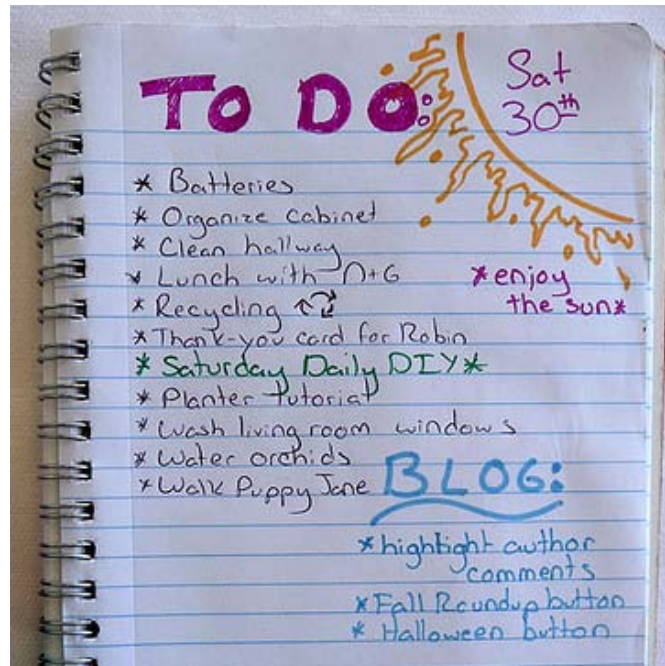 TO DO:
Sat
30th
* Batteries
* Organize cabinet
* Clean hallway
* Lunch with n+G
* Recycling
* Thank-you card for Robin
* Saturday Daily DIY *
* Planter tutorial
* Wash living room windows
* Water orchids
* Walk Puppy Jane
* enjoy
the sun *
BLOG:
* highlight author
comments
* Fall Roundup button
* Halloween button